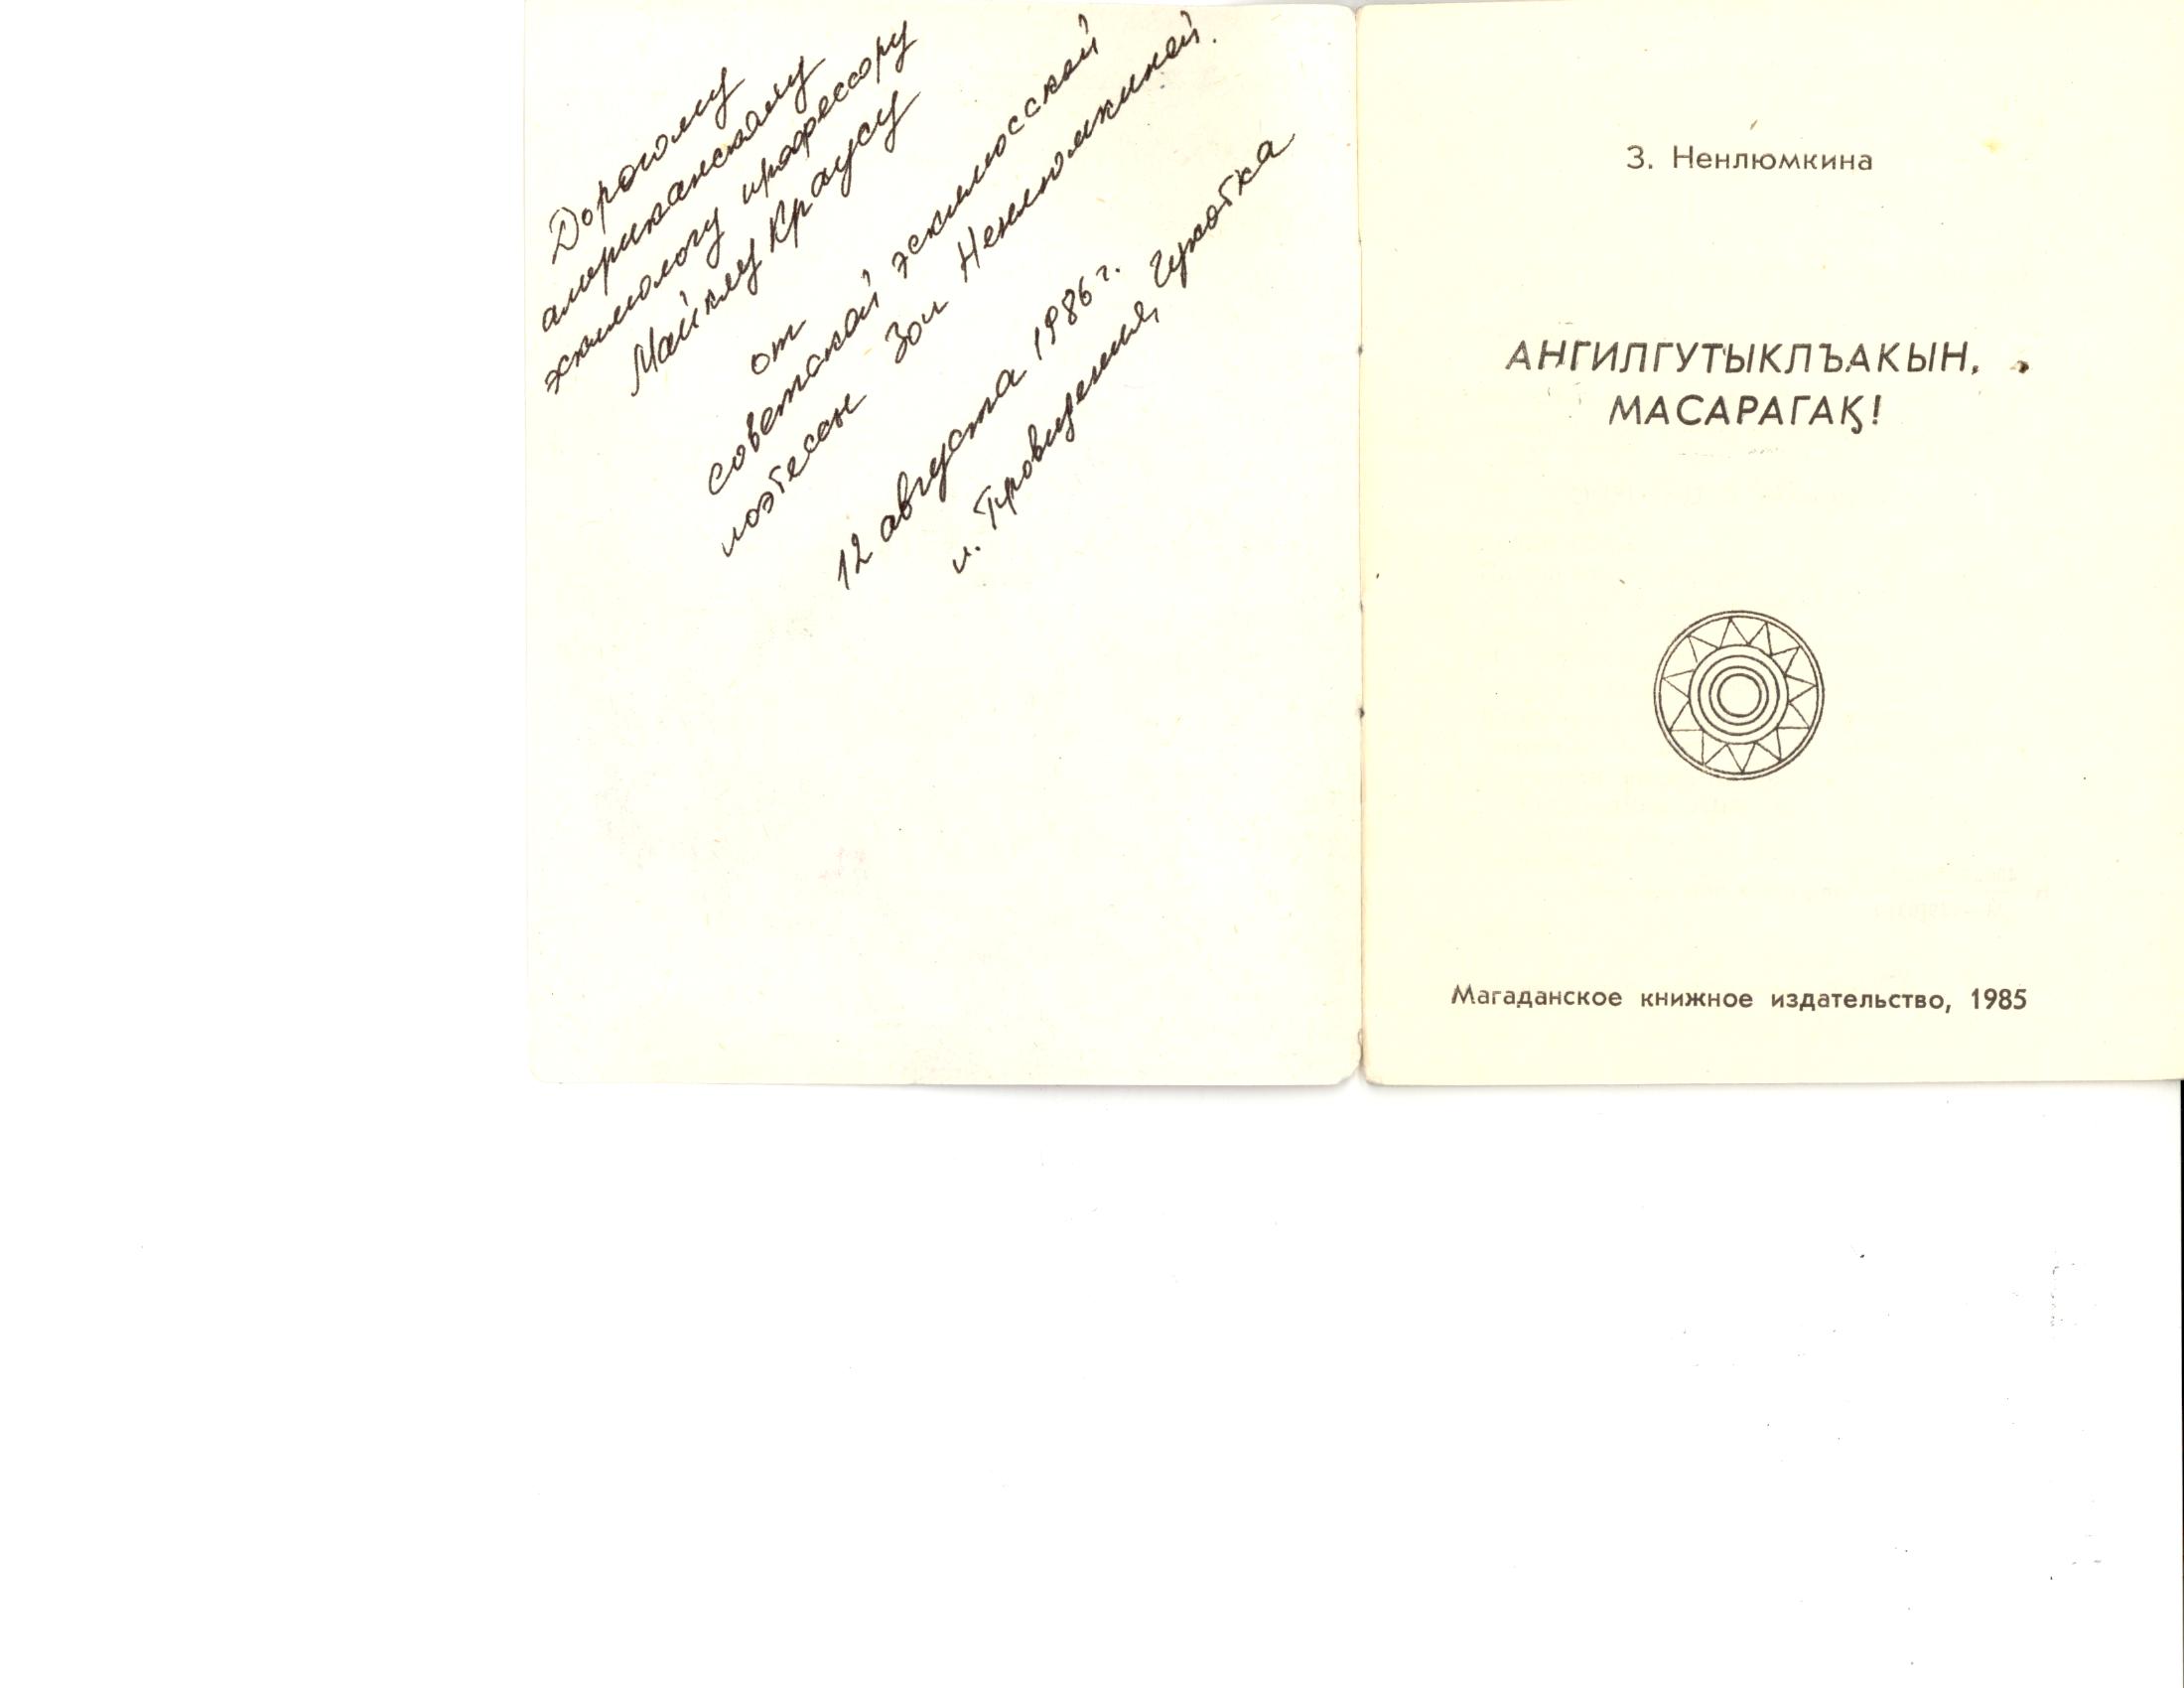 Дорогому
американскому
эскимологу профессору
Майклу Краусу
от
советской эскимосской
поэтессы Зои Ненлюмкиной.
12 августа 1986 г.
п. Провидения, Чукотка
З. Ненлюмкина
АНГИЛГУТЫКЛЪАКЫН,
МАСАРАГАӃ!
Магаданское книжное издательство, 1985